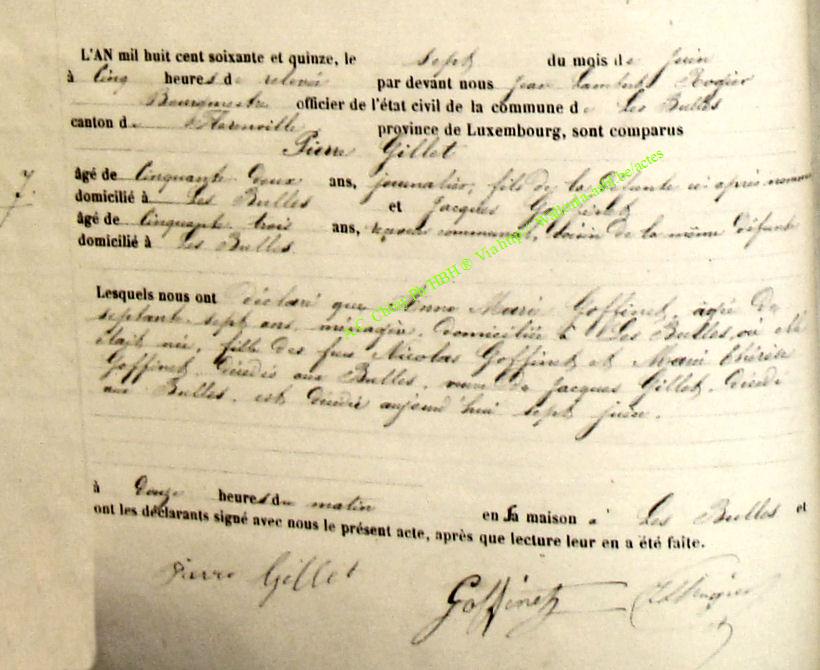 L'AN mil huit cent soixante et quinze, le sept du mois de juin
à cinq heures de relevée par devant nous Jean Lambert Rogier
Bourgmestre officier de l'état civil de la commune de Les Bulles
canton de Florenville province de Luxembourg, sont comparus
Pierre Gillet
7.
âgé de cinquante deux ans, journalier, fils de la défunte ci après nommée
domicilié à Les Bulles et Jacques Goffinet
âgé de cinquante trois ans, receveur communal, voisin de la même défunte
domicilié à Les Bulles.
Lesquels nous ont déclaré que Anne Marie Goffinet, âgée de
septante sept ans, ménagère, domiciliée à Les Bulles, où elle
était née, fille des feus Nicolas Goffinet et Marie Thérèse
Goffinet, décédés aux Bulles, veuve de Jacques Gillet, décédé
aux Bulles, est décédée aujourd'hui sept juin.
à douze heures du matin en sa maison à Les Bulles et
ont les déclarants signé avec nous le présent acte, après que lecture leur en a été faite.
Pierre Gillet
Goffinet
JLRogier